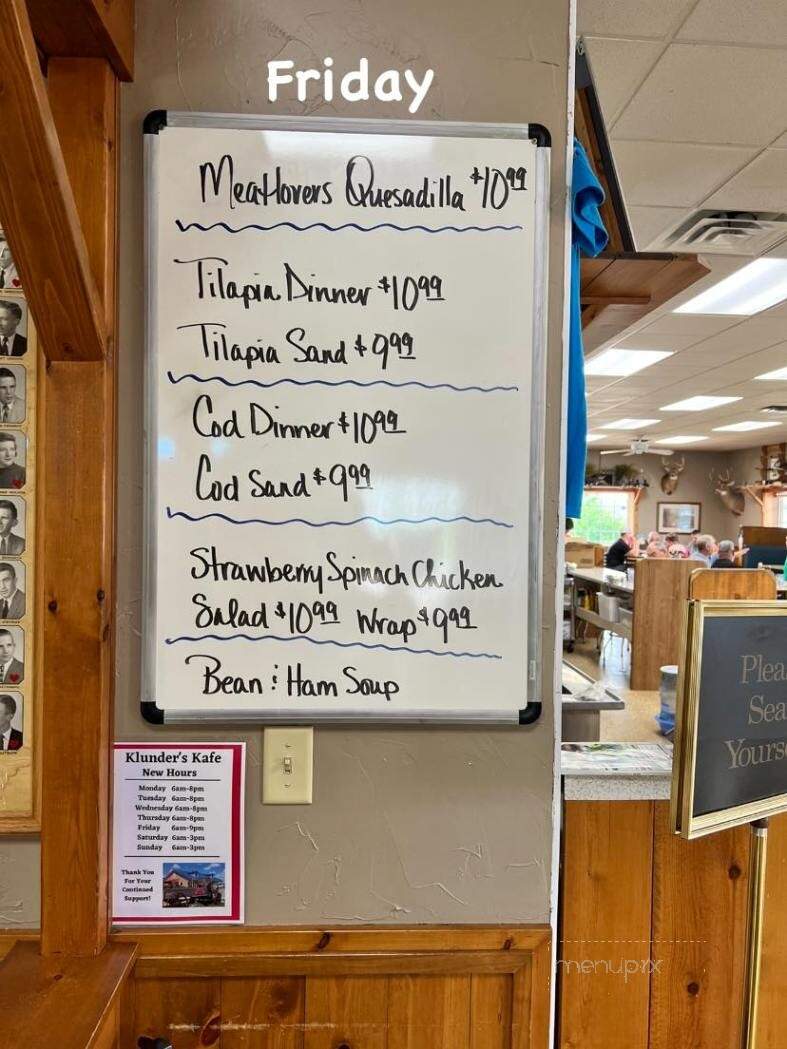 Friday
Meatlovers Quesadilla $10.99
Tilapia Dinner $10.99
Tilapia Sand $9.99
Cod Dinner $10.99
Cod Sand $9.99
Strawberry Spinach Chicken
Salad $10.99 Wrap $9.99
Bean & Ham Soup
Klunder's Kafe
New Hours
Monday 6am-8pm
Tuesday 6am-8pm
Wednesday 6am-8pm
Thursday 6am-8pm
Friday 6am-9pm
Saturday 6am-3pm
Sunday 6am-3pm
Thank You
For Your
Continued
Support!
Plea
Sea
Yourse
menupix